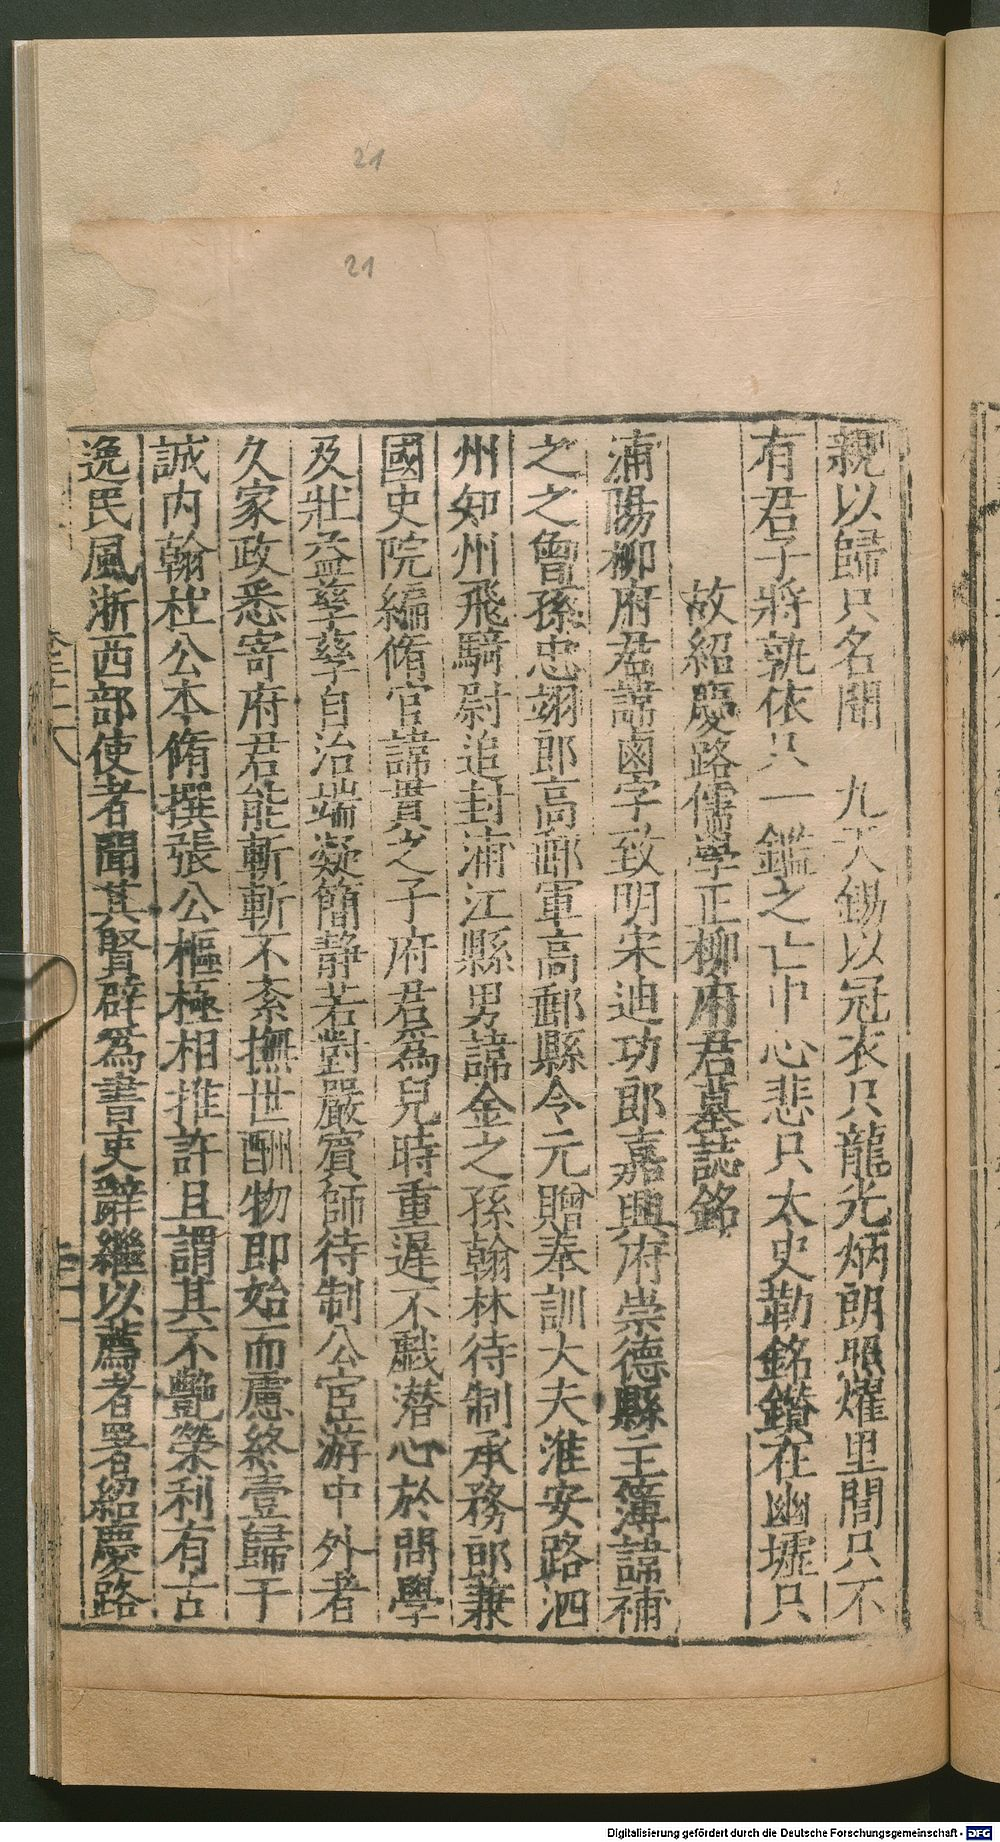 21
21
親以歸只名聞 九天錫以冠衣只龍光炳朗照燿里閭只不
有君子將孰依只一鑑之亡中心悲只太史勒銘鑽在幽墟只
故紹慶路儒學正柳府君墓誌銘
浦陽柳府君諱鹵字致明宋迪功郎嘉興府崇德縣主簿諱補
之之曾孫忠翊郎高郵軍高郵縣令元贈奉訓大夫淮安路泗
州知州飛騎尉追封浦江縣男諱金之孫翰林待制承務郎兼
國史院編脩官諱貫之子府君爲兒時重遲不戲潜心於問學
及壯益孳孳自治端凝簡靜若對嚴賓師待制公宦游中外者
久家政悉寄府君能斬斬不紊撫世酬物即始而慮終壹歸于
誠内翰杜公本脩撰張公樞極相推許且謂其不艷榮利有古
逸民風浙西部使者聞其賢辟爲書吏辭繼以薦者署紹慶路
Digitalisierung gefördert durch die Deutsche Forschungsgemeinschaft - DFG